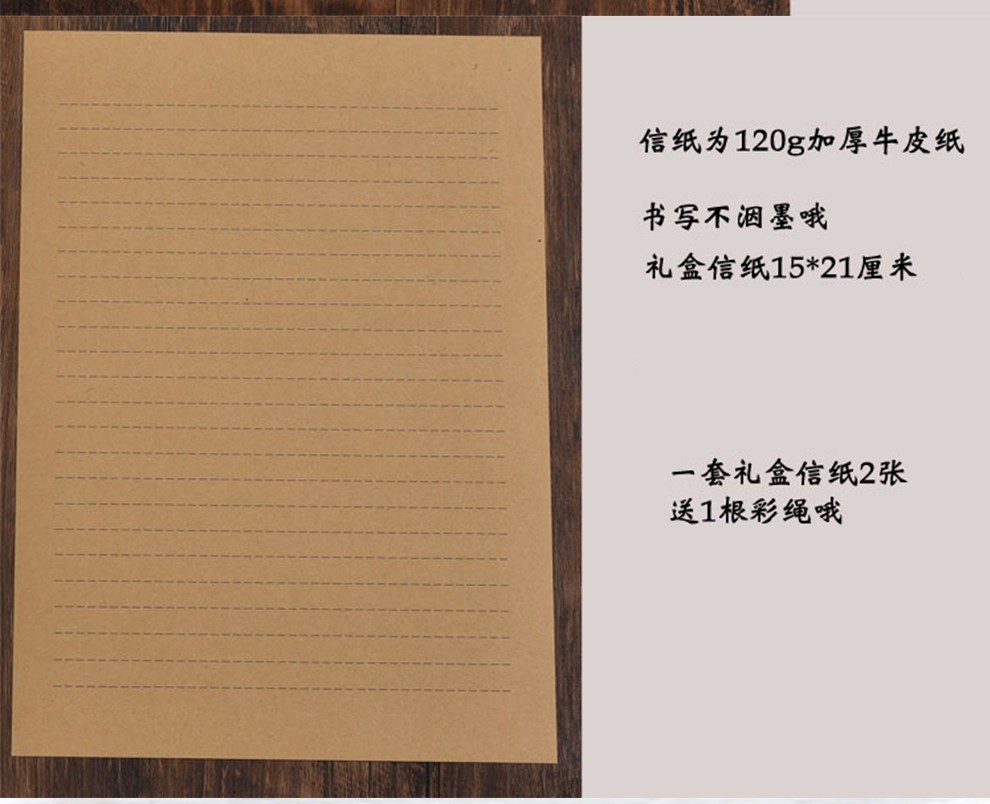 信纸为120g加厚牛皮纸
书写不洇墨哦
礼盒信纸15*21厘米
一套礼盒信纸2张
送1根彩绳哦